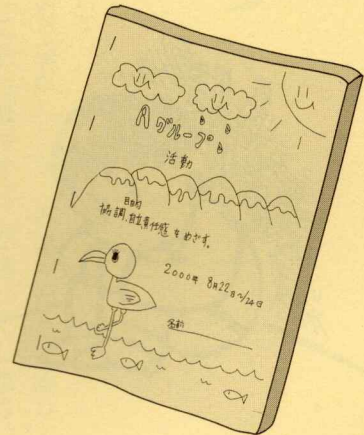 Aグループ
活動
目的
協調、自立、責任感をめざす。
2000年 8月22日〜24日
名前